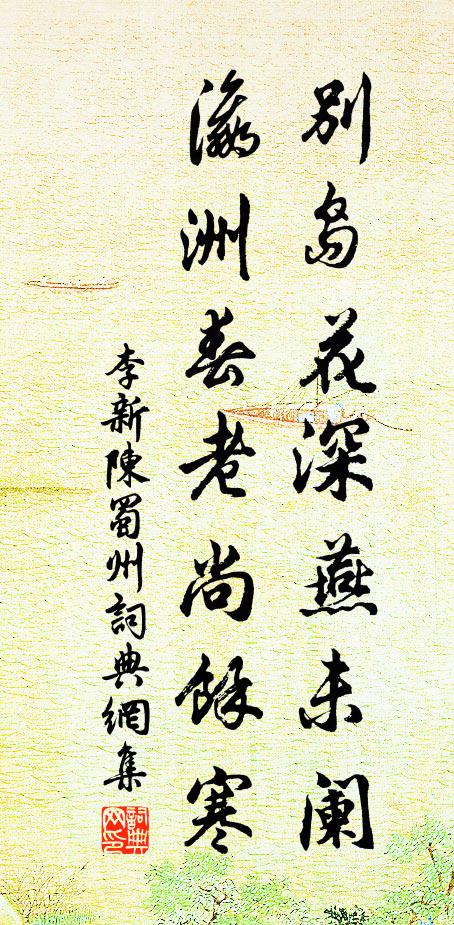 別島花深燕未阑
瀛洲春老尚餘寒
李新陳蜀州詞典網集
詞典網印